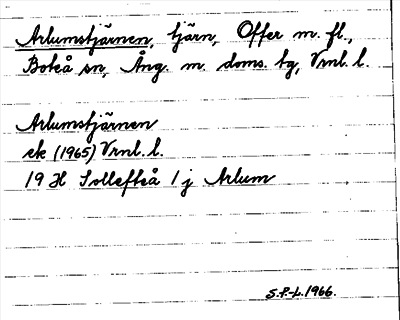 Arlumstjärnen, tjärn, Offer m. fl.,
Boteå sn, Ång. m. doms. tg, Vrnl. l.
Arlumstjärnen
ek (1965) Vrnl. l.
19 H Sollefteå 1 j Arlum
S.P-L. 1966.